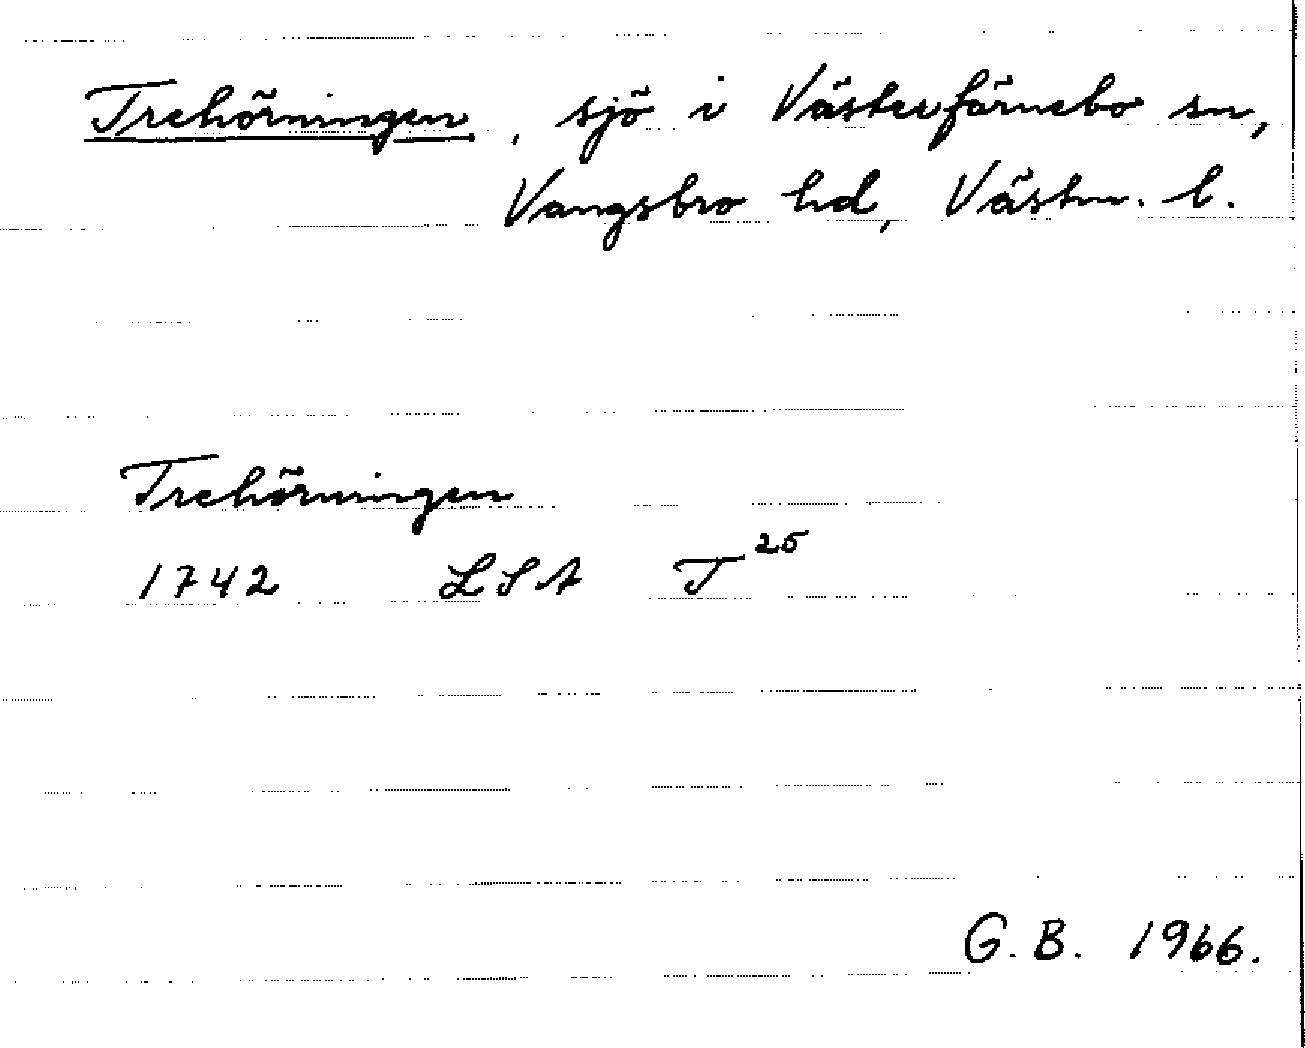 Trehörningen, sjö i Västerfärnebo sn,
Vangsbro hd, Västm. l.
Trehörningen
1742 LSA T²⁵
G.B. 1966.